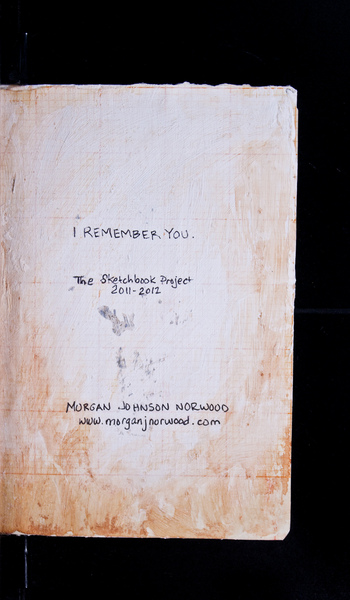 I REMEMBER YOU.
The Sketchbook Project
2011-2012
MORGAN JOHNSON NORWOOD
www.morganjnorwood.com